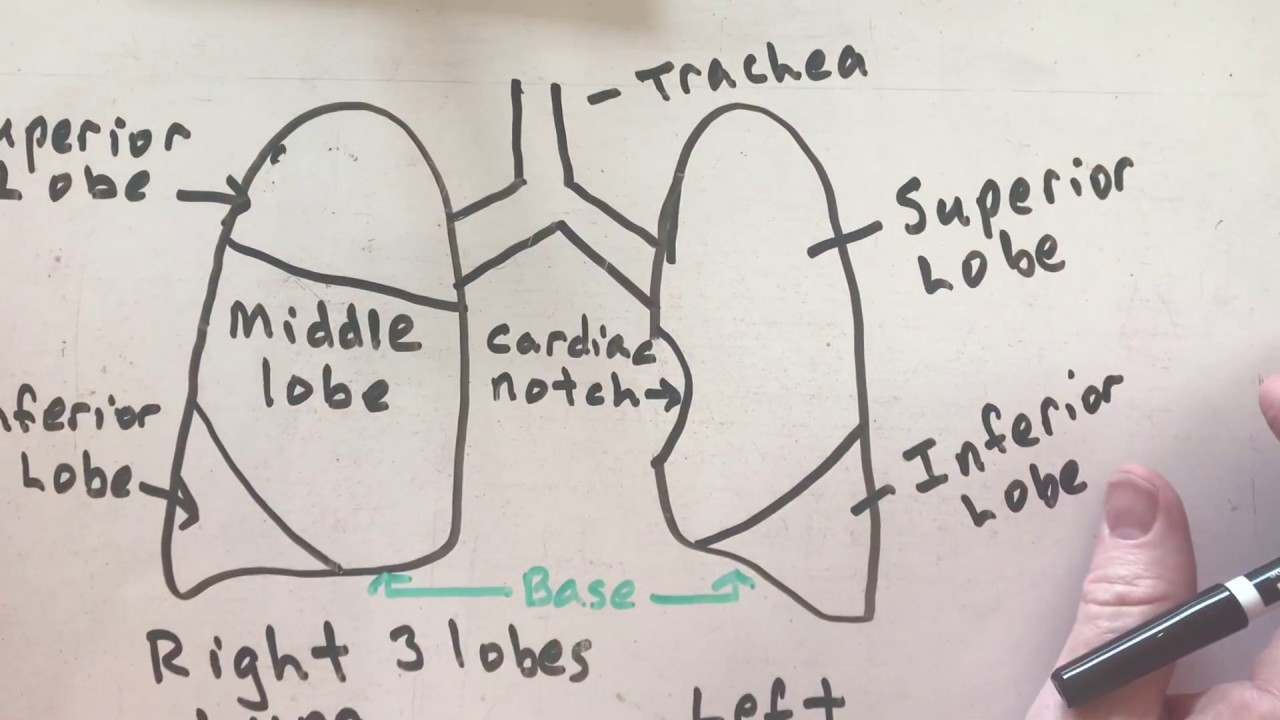 Trachea
uperior
Lobe
Superior
Lobe
Middle
lobe
cardiac
notch
nferior
Lobe
Inferior
Lobe
Base
Right 3 lobes
Lung
Left